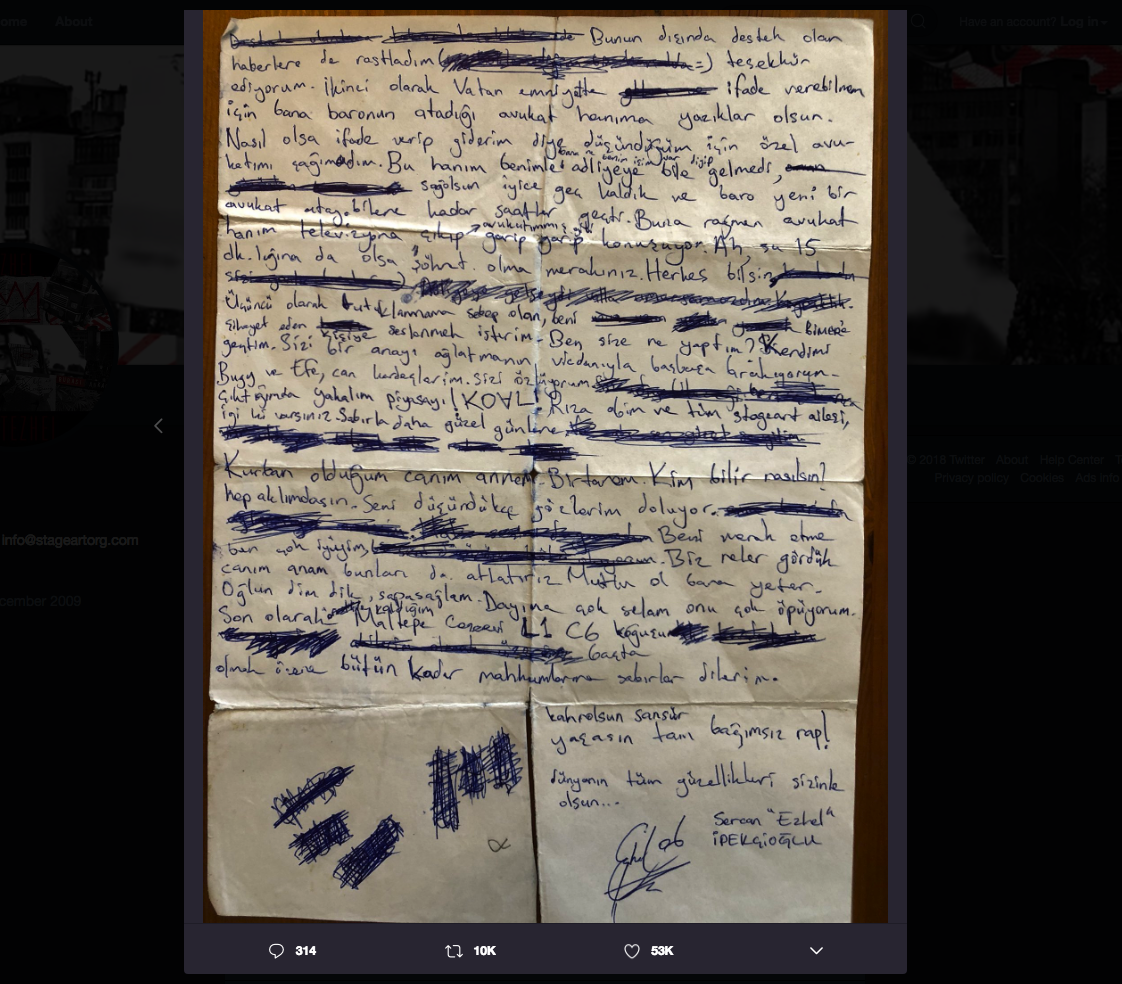 ome
About
Have an account? Log in
Bunun dışında destek olan
haberlere de rastladım ( =) teşekkür
ediyorum. İkinci olarak Vatan emniyette ifade verebilmem
için bana baronun atadığı avukat hanıma yazıklar olsun.
Nasıl olsa ifade verip giderim diye düşündüğüm için özel avu-
katımı çağırmadım. Bu hanım benimle adliyeye bile gelmedi,
sağolsun iyice geç kaldık ve baro yeni bir
avukat atayabilene kadar saatler geçti. Buna rağmen avukat
hanım televizyona çıkıp avukatıymış gibi garip garip konuşuyor. Ah, şu 15
dk.lığına da olsa şöhret olma merakınız. Herkes bilsin
Üçüncü olarak tutuklanmama sebep olan, beni BİMER'e
şikayet eden kişiye seslenmek isterim. Ben size ne yaptım? Kendimi
geçtim. Sizi bir anayı ağlatmanın vicdanıyla başbaşa bırakıyorum.
Bugy ve Efe, can kardeşlerim. Sizi özlüyorum
çıktığımda yakalım piyasayı! Rıza abim ve tüm stageart ailesi,
iyi ki varsınız. Sabırla daha güzel günlere
Kurban olduğum canım annem. Birtanem. Kim bilir nasılsın?
hep aklımdasın. Seni düşündükçe gözlerim doluyor.
Beni merak etme
ben çok iyiyim, Biz neler gördük
canım anam bunları da atlatırız. Mutlu ol bana yeter.
Oğlun dim dik, sapasağlam. Dayıma çok selam onu çok öpüyorum.
Son olarak kaldığım Maltepe Cezaevi L1 C6 koğuşu
başta
olmak üzere bütün kader mahkumlarına sabırlar dilerim.
kahrolsun sansür
yaşasın tam bağımsız rap!
dünyanın tüm güzellikleri sizinle
olsun...
Sercan "Ezhel"
İPEKÇİOĞLU
info@stageartorg.com
cember 2009
© 2018 Twitter About Help Center T
Privacy policy Cookies Ads info
314
10K
53K